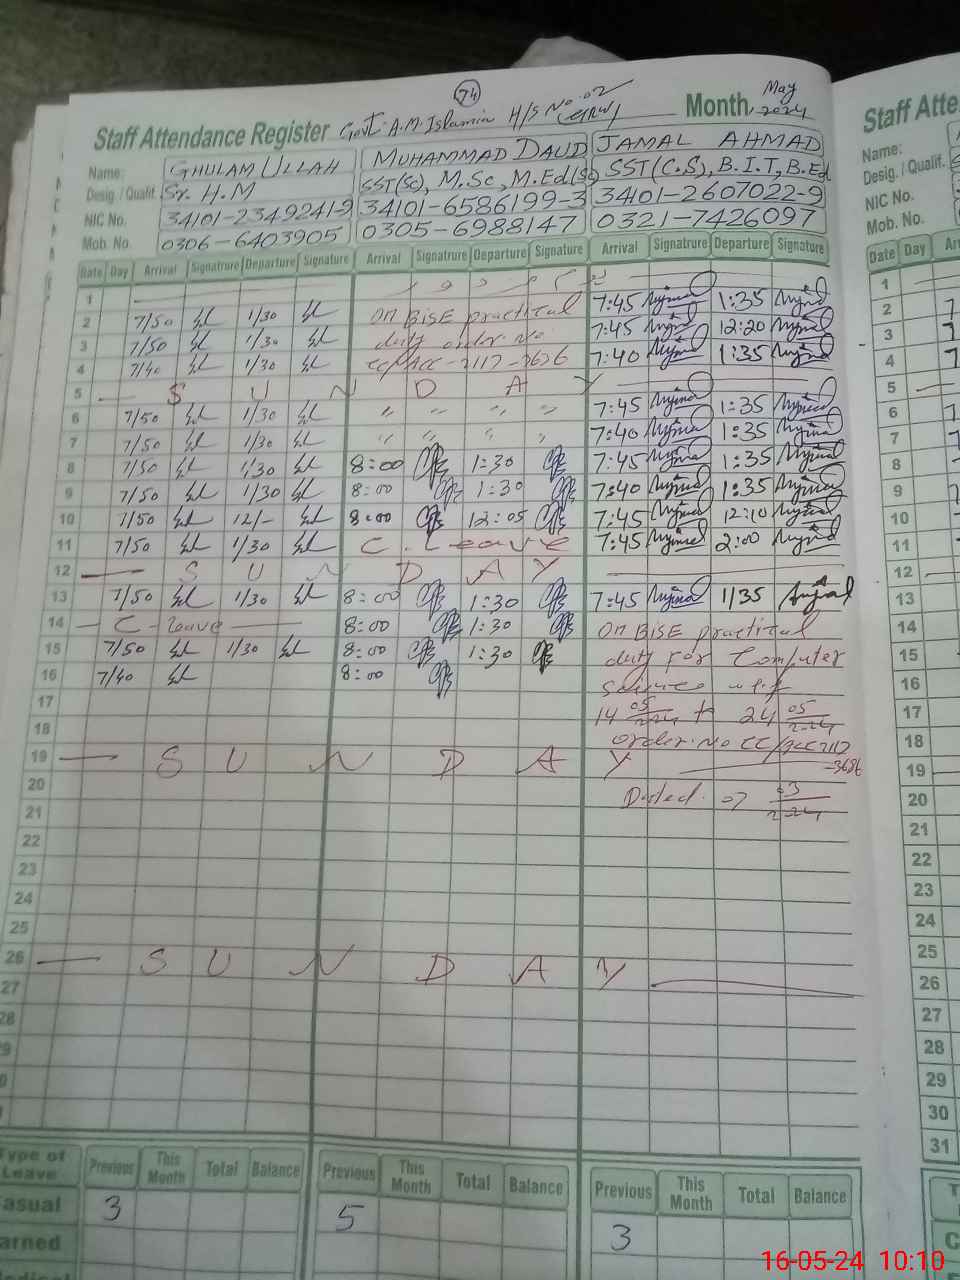 74
Staff Attendance Register Govt. A.M. Islamia H/S No. 02 GRW Month May 2024
Name: GHULAM ULLAH MUHAMMAD DAUD JAMAL AHMAD
Desig. / Qualif. Sr. H.M SST(Sc), M.Sc, M.Ed(Sc) SST(C.S), B.I.T, B.Ed
NIC No. 34101-2349241-9 34101-6586199-3 34101-2607022-9
Mob. No. 0306-6403905 0305-6988147 0321-7426097
Date Day Arrival Signatrure Departure Signature Arrival Signatrure Departure Signature Arrival Signatrure Departure Signature
1
2 7/50 1/30 On BISE practical 7:45 1:35
3 7/50 1/30 duty order no 7:45 12:20
4 7/40 1/30 7:40 1:35
5 S U N D A Y
6 7/50 1/30 " " " " 7:45 1:35
7 7/50 1/30 " " " " 7:40 1:35
8 7/50 1/30 8:00 1:30 7:45 1:35
9 7/50 1/30 8:00 1:30 7:40 1:35
10 7/50 12/- 8:00 12:05 7:45 12:10
11 7/50 1/30 C. Leave 7:45 2:00
12 S U N D A Y
13 7/50 1/30 8:00 1:30 7:45 1/35
14 C-leave 8:00 1:30 On BISE practical
15 7/50 1/30 8:00 1:30 duty for Computer
16 7/40 8:00 w.e.f
17 14 05/2024 to 24 05/2024
18 order No CC/ACC 2117
19 S U N D A Y -3686
20 Dated. 07 03/2024
21
22
23
24
25
26 S U N D A Y
27
28
29
Type of Leave Previous This Month Total Balance Previous This Month Total Balance Previous This Month Total Balance
Casual 3 5 3
Earned
Medical
Staff Atte
Name:
Desig. / Qualif.
NIC No.
Mob. No.
Date Day
1
2
3
4
5
6
7
8
9
10
11
12
13
14
15
16
17
18
19
20
21
22
23
24
25
26
27
28
29
30
31
16-05-24 10:10